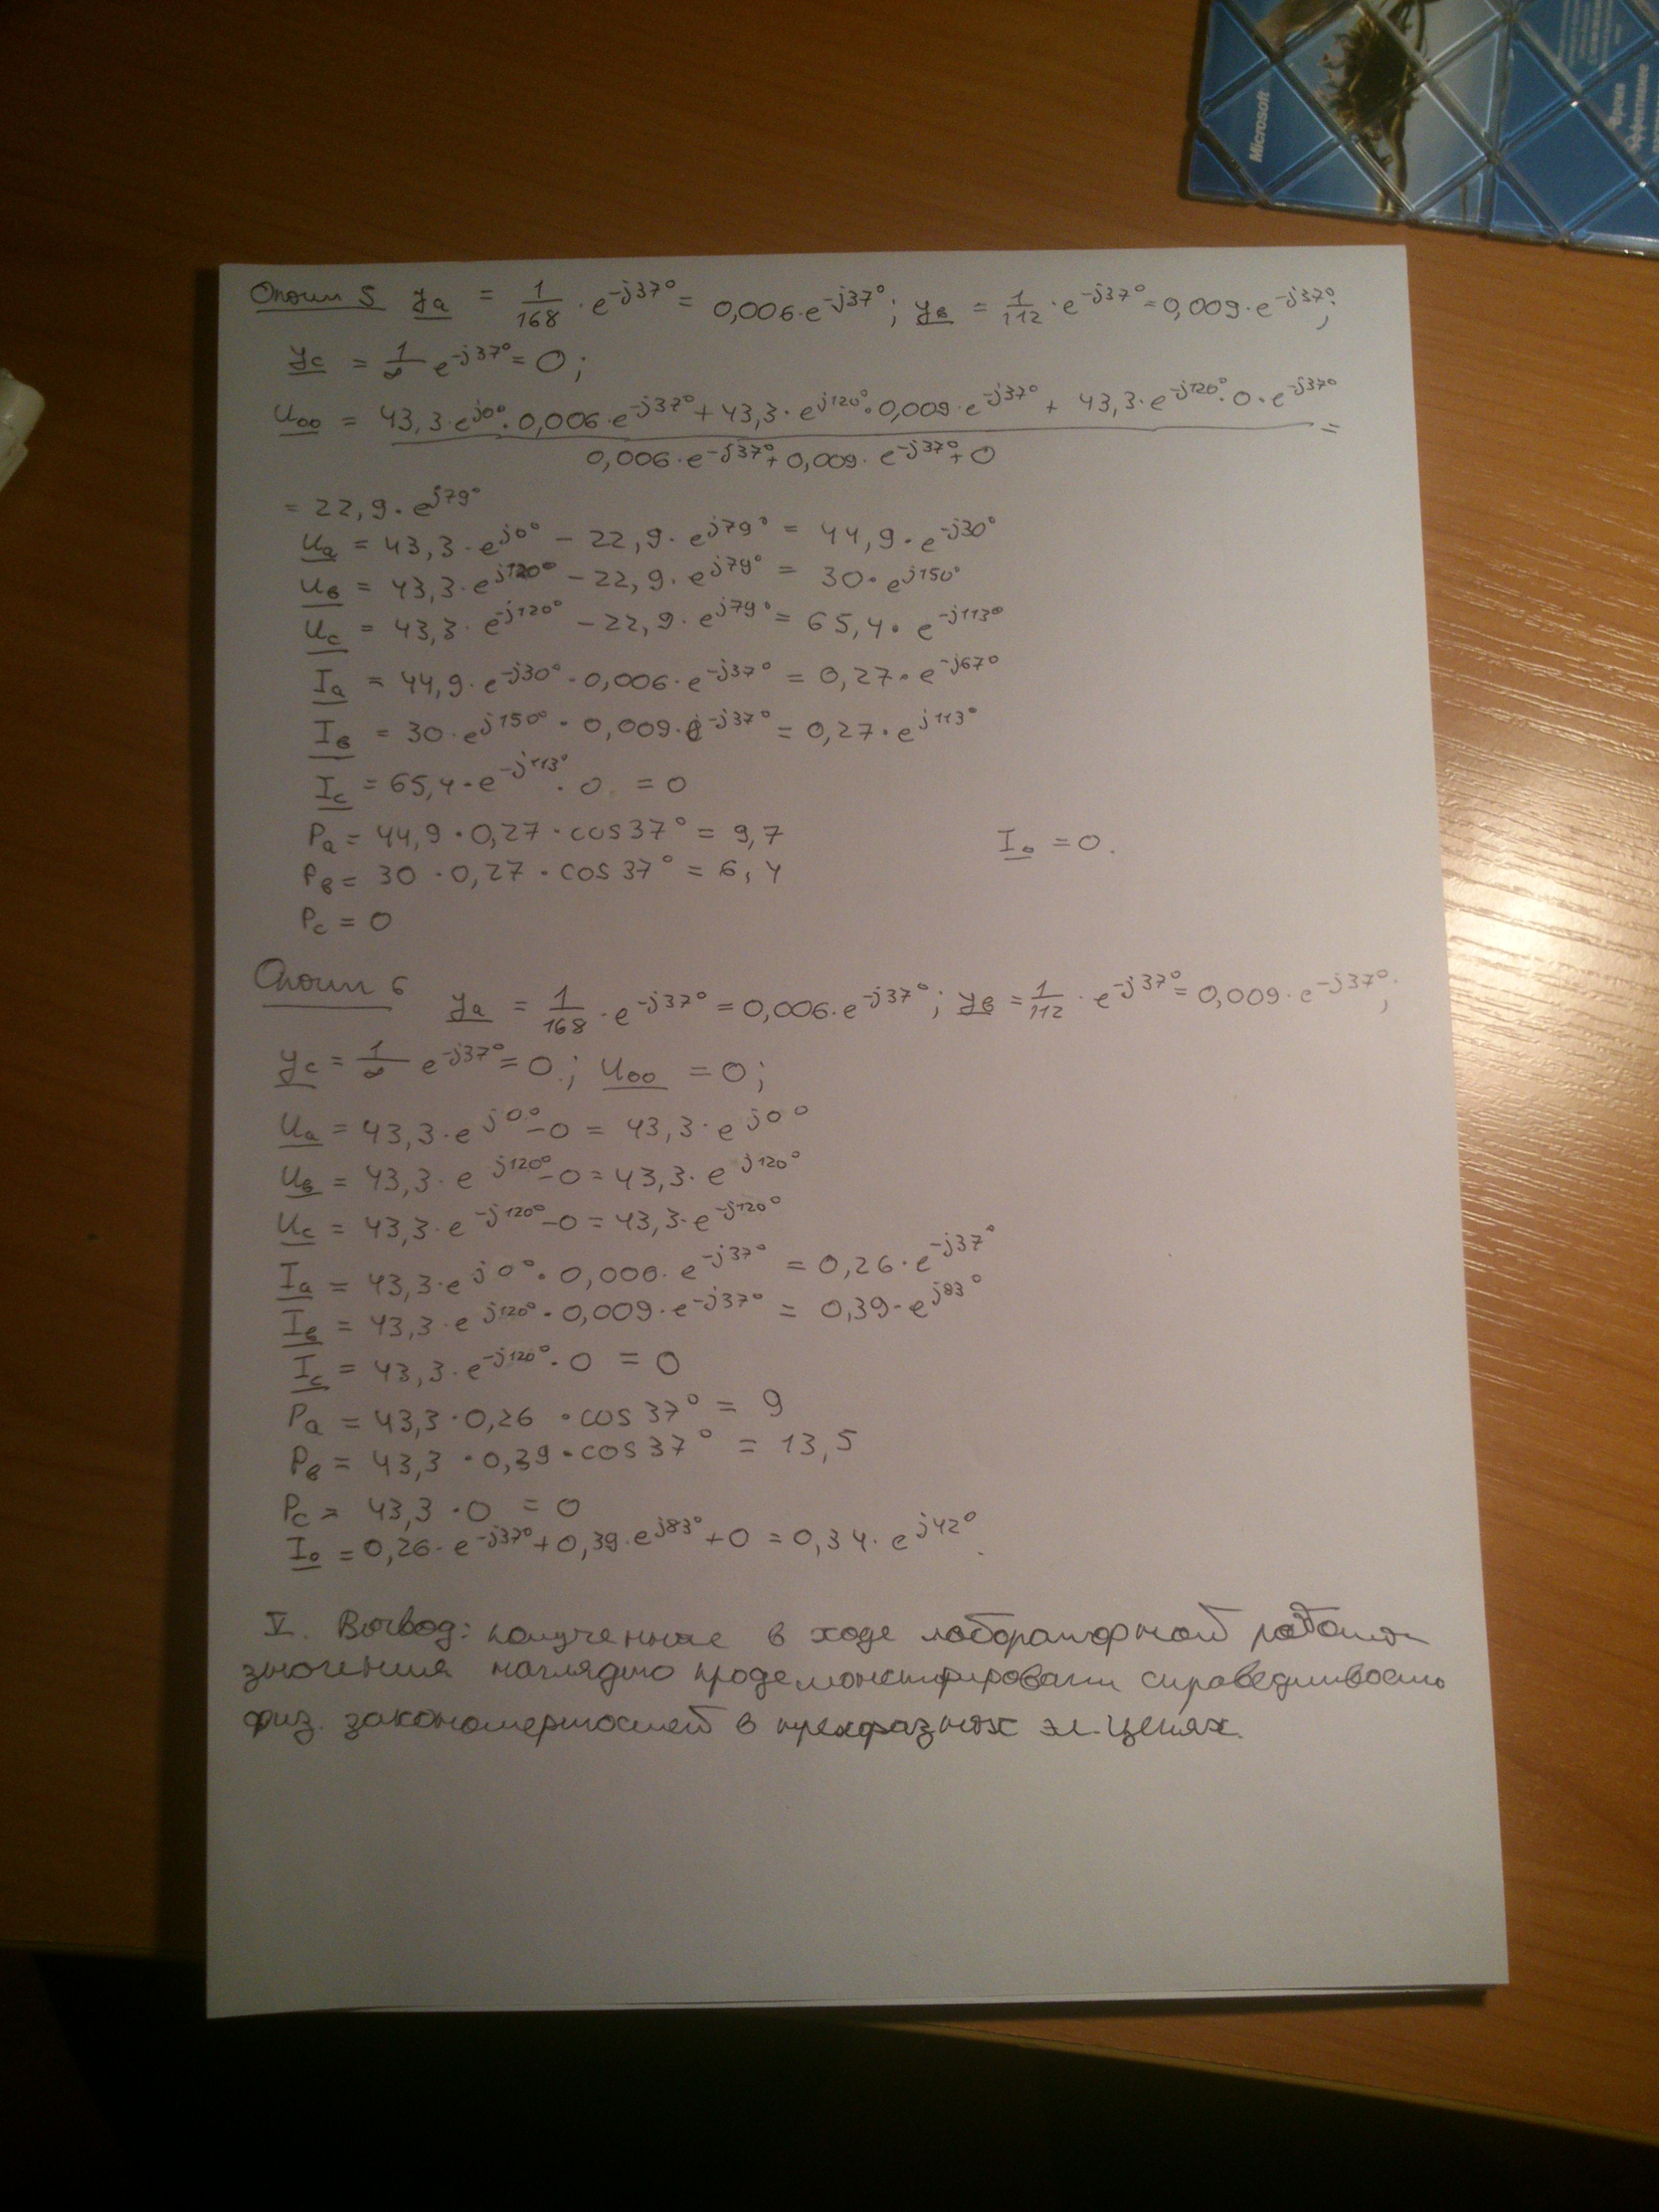 Microsoft
Опыт 5 Ya = 1/168 · e^-j37° = 0,006·e^-j37°; Yв = 1/112 · e^-j37° = 0,009·e^-j37°;
Yc = 1/∞ e^-j37° = 0;
U00 = (43,3·e^j0°·0,006·e^-j37° + 43,3·e^j120°·0,009·e^-j37° + 43,3·e^-j120°·0·e^-j37°) / (0,006·e^-j37° + 0,009·e^-j37° + 0) =
= 22,9·e^j79°
Ua = 43,3·e^j0° - 22,9·e^j79° = 44,9·e^-j30°
Uв = 43,3·e^j120° - 22,9·e^j79° = 30·e^j150°
Uc = 43,3·e^-j120° - 22,9·e^j79° = 65,4·e^-j113°
Ia = 44,9·e^-j30°·0,006·e^-j37° = 0,27·e^-j67°
Iв = 30·e^j150°·0,009·e^-j37° = 0,27·e^j113°
Ic = 65,4·e^-j113°·0 = 0
Pa = 44,9·0,27·cos37° = 9,7
I0 = 0.
Pв = 30·0,27·cos37° = 6,4
Pc = 0
Опыт 6 Ya = 1/168 · e^-j37° = 0,006·e^-j37°; Yв = 1/112 · e^-j37° = 0,009·e^-j37°;
Yc = 1/∞ e^-j37° = 0.; U00 = 0;
Ua = 43,3·e^j0° - 0 = 43,3·e^j0°
Uв = 43,3·e^j120° - 0 = 43,3·e^j120°
Uc = 43,3·e^-j120° - 0 = 43,3·e^-j120°
Ia = 43,3·e^j0°·0,006·e^-j37° = 0,26·e^-j37°
Iв = 43,3·e^j120°·0,009·e^-j37° = 0,39·e^j83°
Ic = 43,3·e^-j120°·0 = 0
Pa = 43,3·0,26·cos37° = 9
Pв = 43,3·0,39·cos37° = 13,5
Pc = 43,3·0 = 0
I0 = 0,26·e^-j37° + 0,39·e^j83° + 0 = 0,34·e^j42°.
V. Вывод: полученные в ходе лабораторной работы
значения наглядно продемонстрировали справедливость
физ. закономерностей в трехфазных эл. цепях.